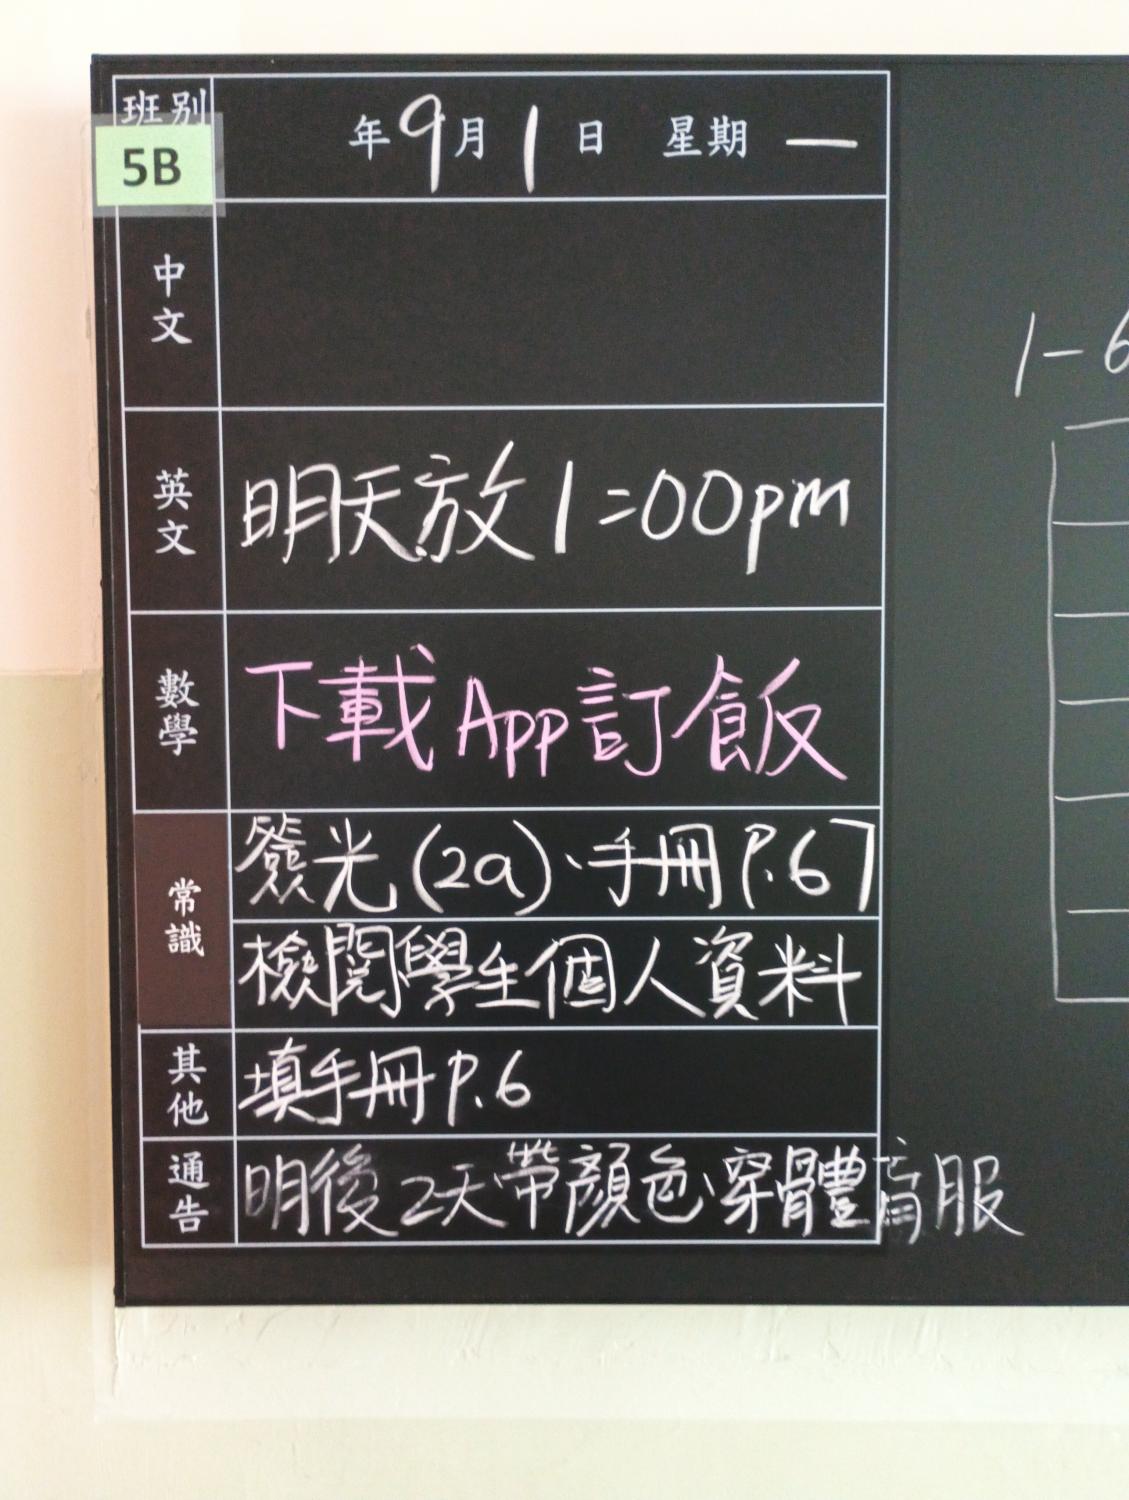 班別
5B
年9月1日 星期一
中文
英文
明天放1:00pm
數學
下載App訂飯
常識
簽光(2a)、手冊P.67
檢閱學生個人資料
其他
填手冊P.6
通告
明後2天帶顏色、穿體育服
1-6